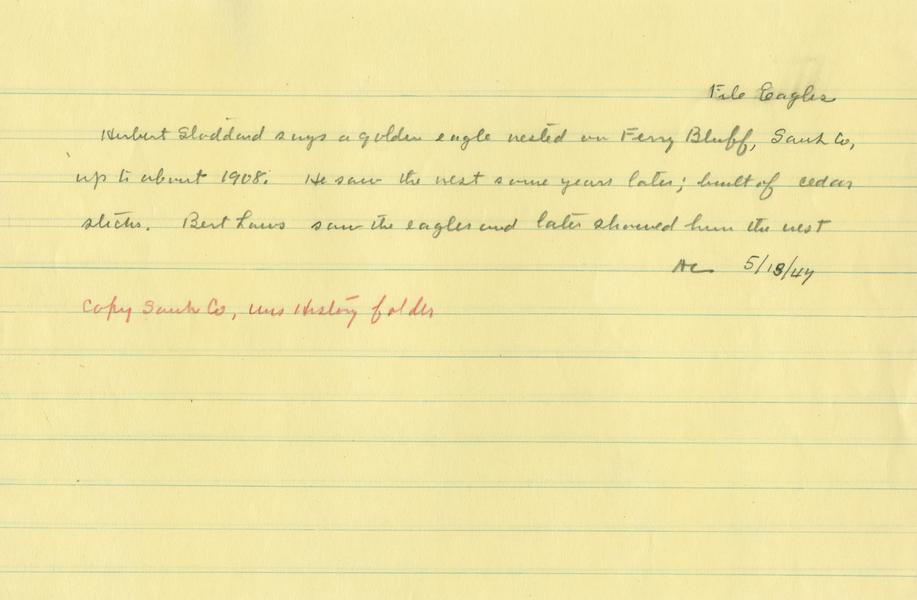 File Eagles
Herbert Stoddard says a golden eagle nested on Ferry Bluff, Sauk Co,
up to about 1908. He saw the nest some years later; built of cedar
sticks. Bert Laws saw the eagles and later showed him the nest
AL 5/18/47
Copy Sauk Co, Wis History folder